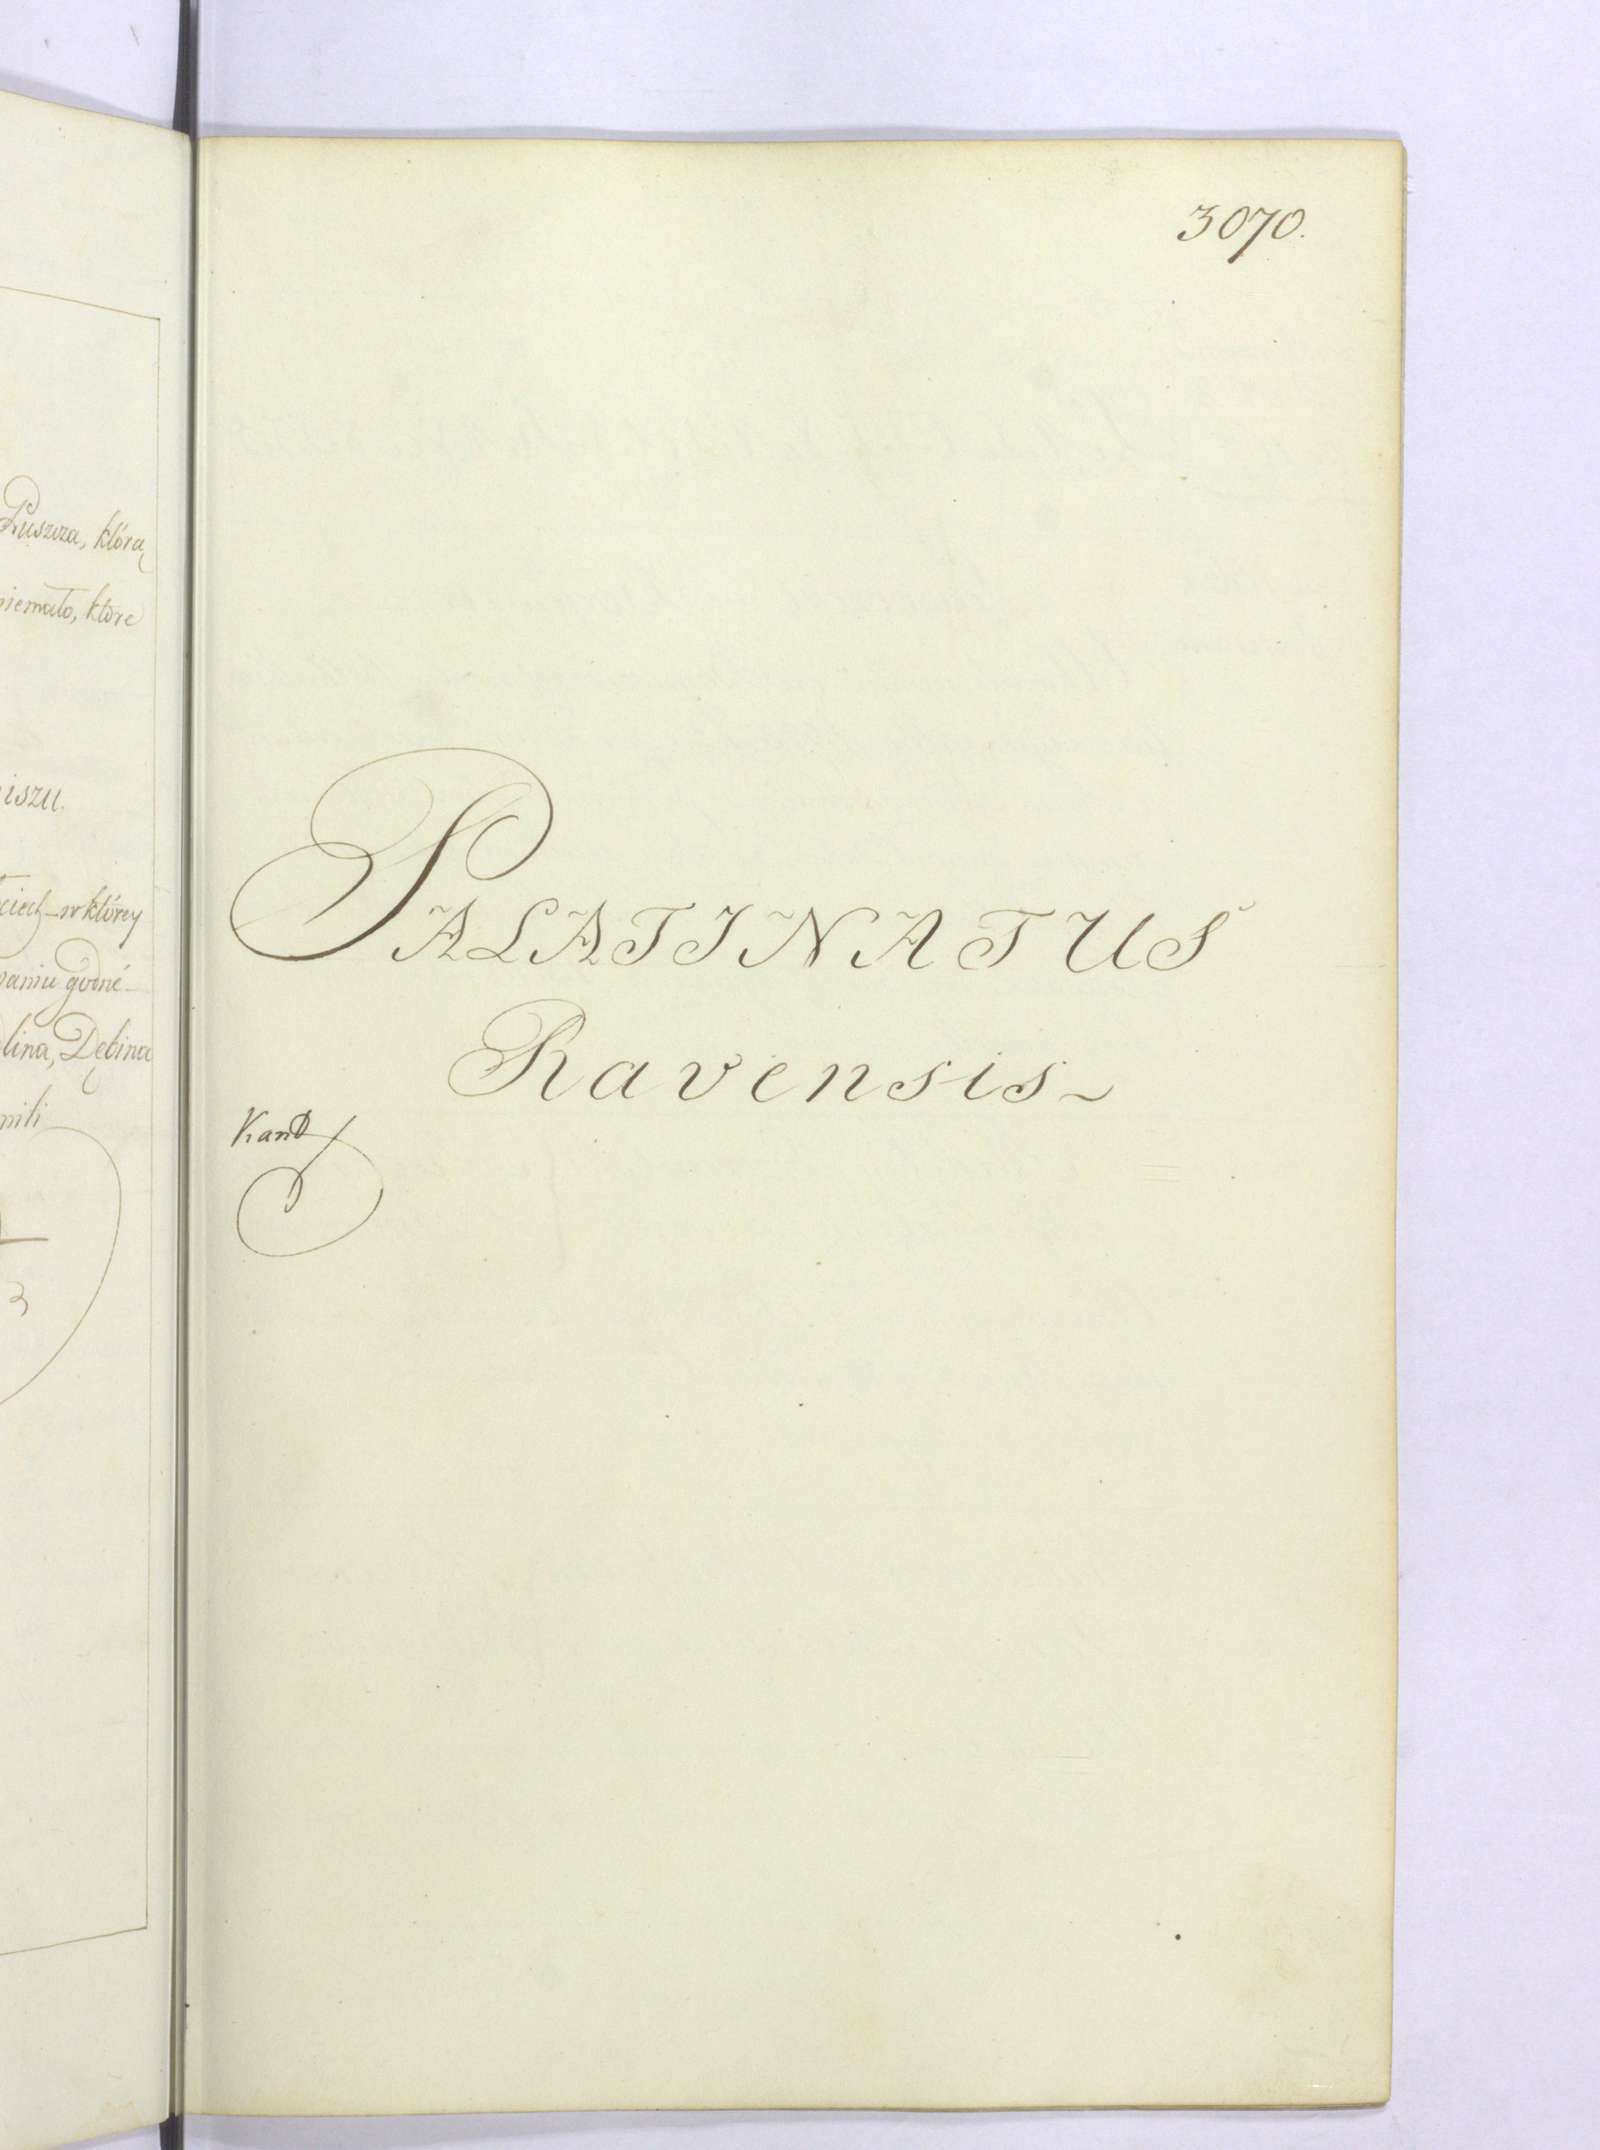 Puszcza, którą
niemało, które
iszu.
ciech w którey
paniu godné
lina, Dębina
mili
3070.
PALATINATUS
Ravensis
Kand